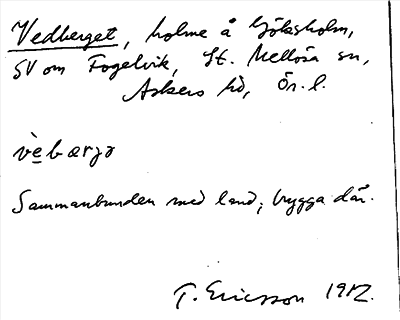 Vedberget, holme å Göksholm,
SV om Fogelvik, St. Mellösa sn,
Askers hd, Ör. l.
vèbærjə
Sammanbunden med land; brygga där.
T. Ericsson 1912.